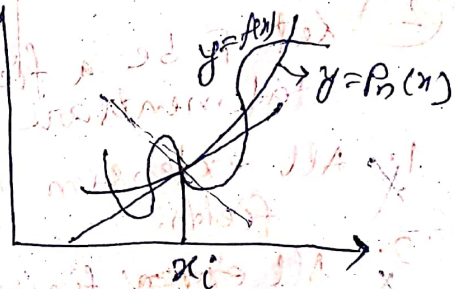 y=f(x)
y=Pn(x)
xi